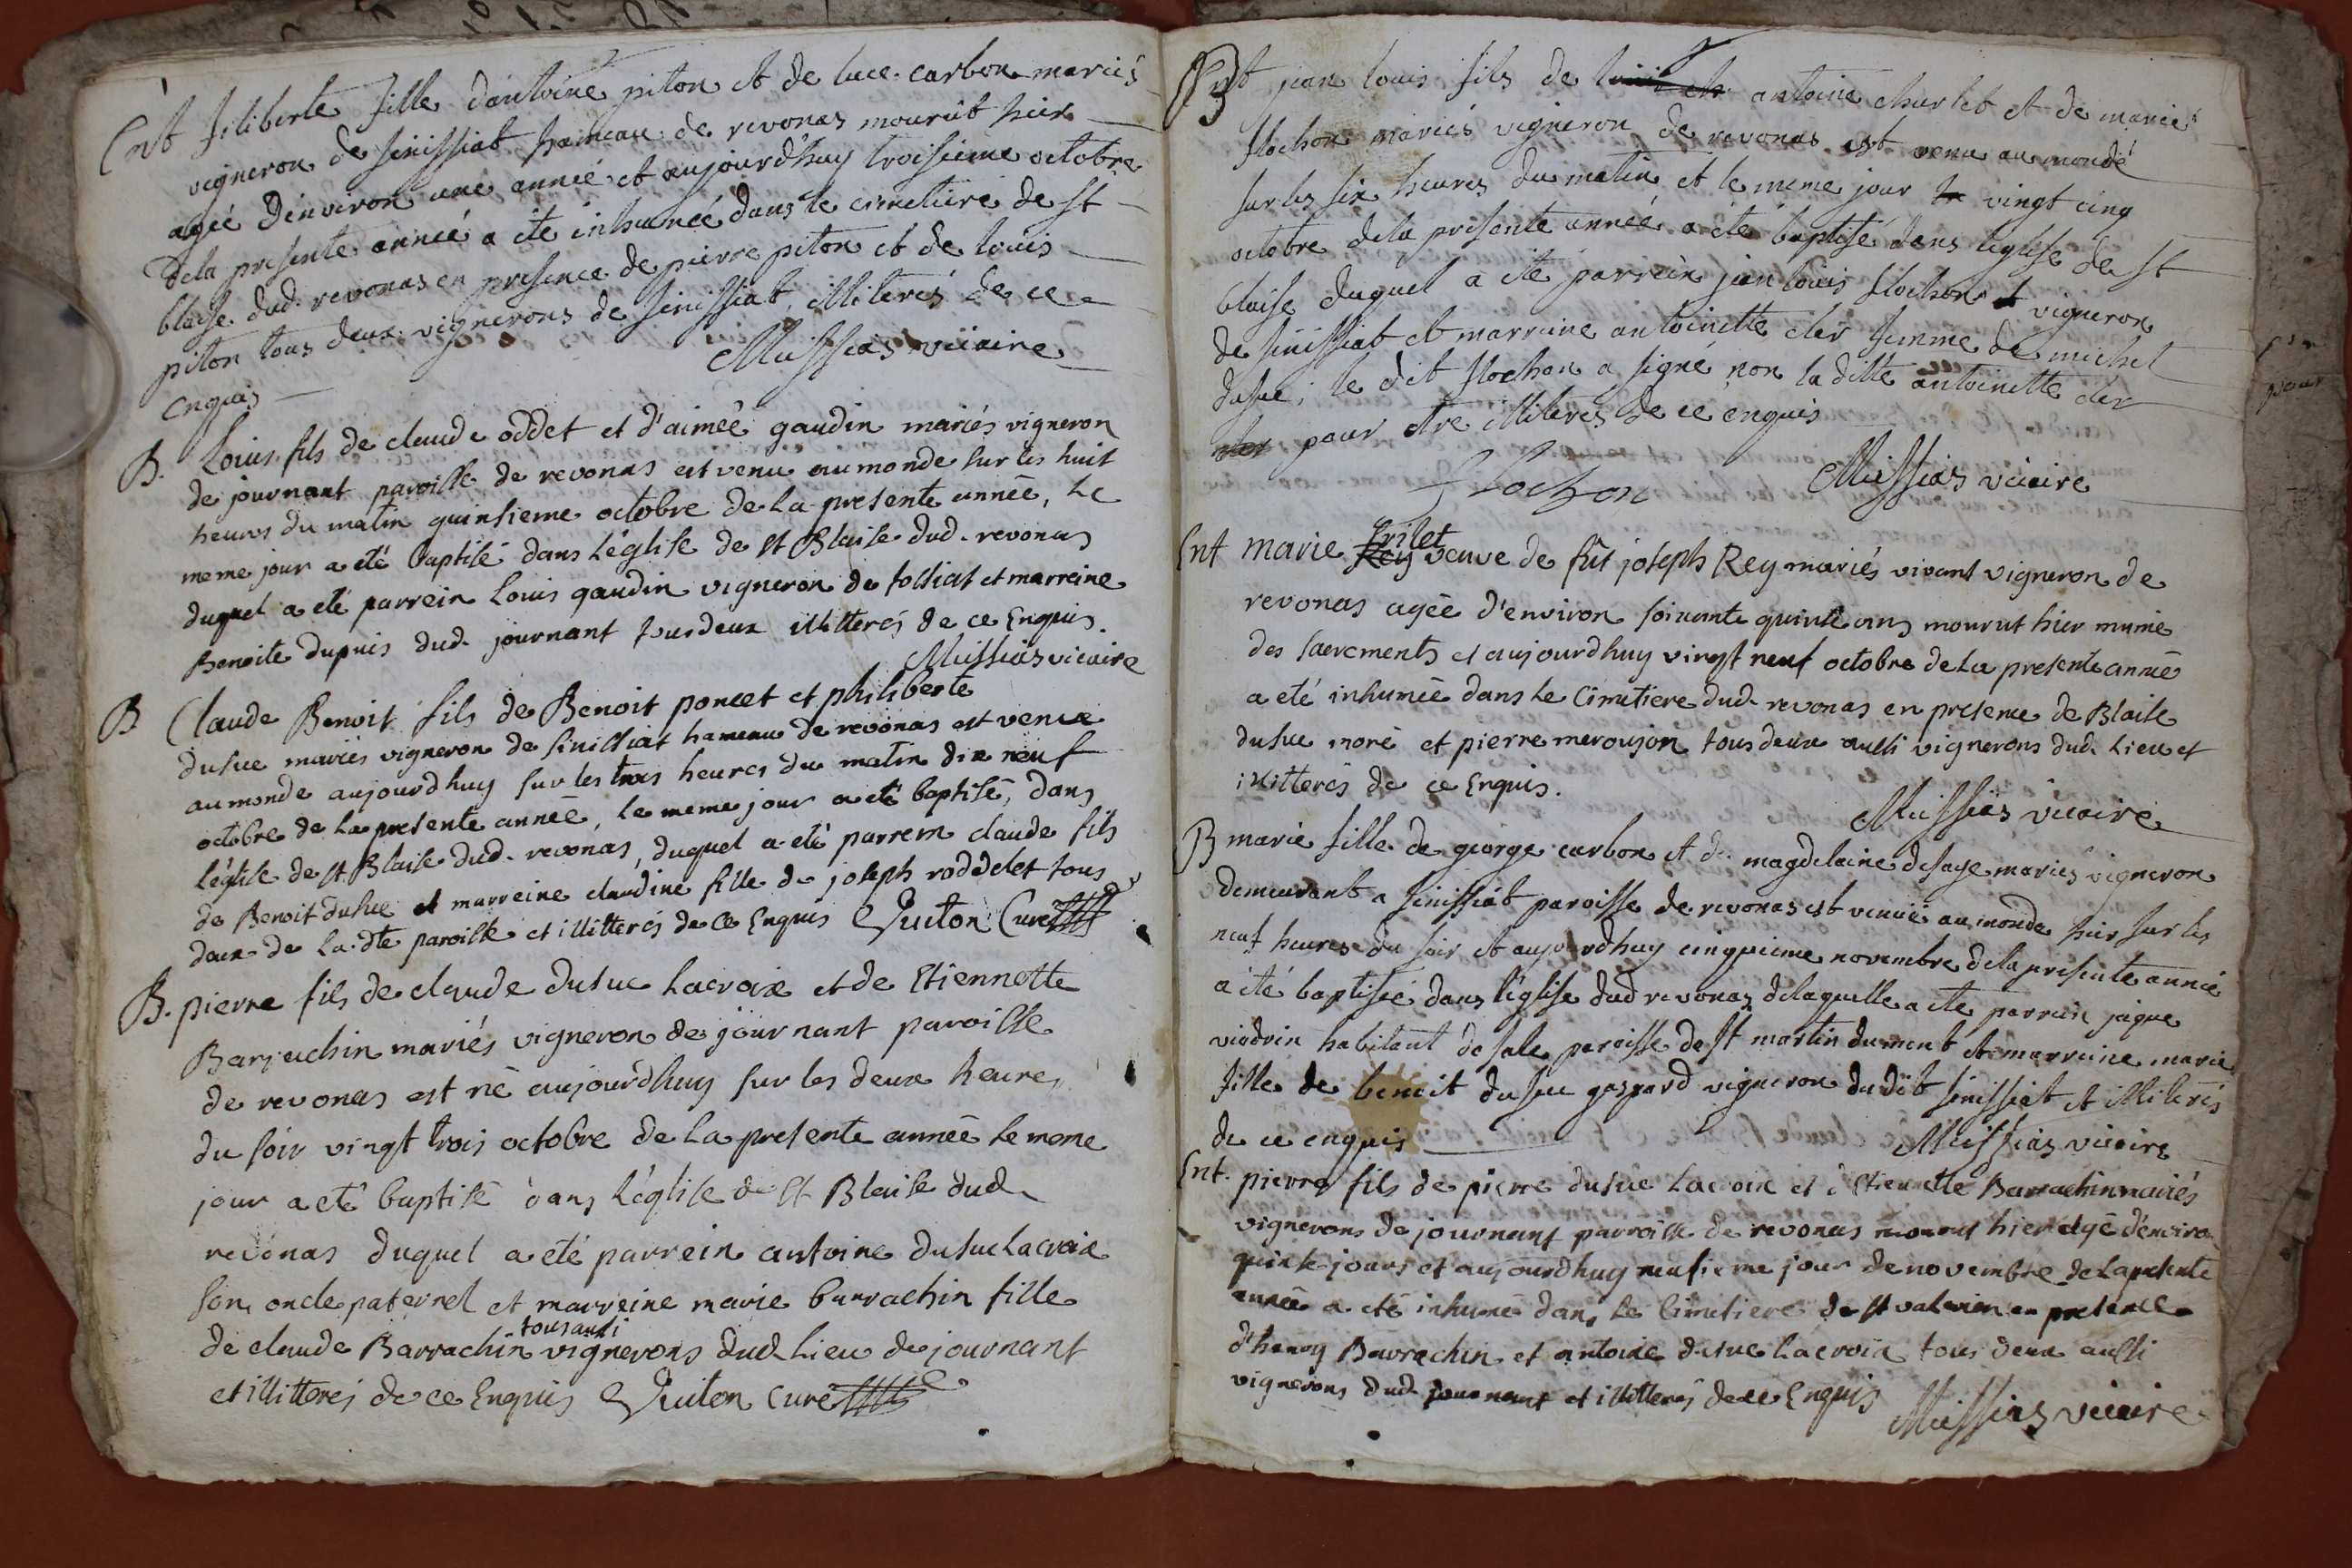 Ent filiberte fille dantoine piton et de luce carbon mariés
vigneron de sinissiat hameau de revonas mourut hier
ageé denviron une anneé et aujourdhuy troisieme octobre
dela presente anneé a eté inhumeé dans le cimetiere de st
blaise dud. revonas en presence de pierre piton et de louis
piton tous deux vignerons de sinissiat illiterés de ce
enquis Missias vicaire
B. Louis fils de claude oddet et d'aimeé gaudin mariés vigneron
de journant paroisse de revonas est venu au monde sur les huit
heures du matin quinsieme octobre de la presente anneé, le
meme jour a eté baptisé dans l'église de st Blaise dud. revonas
duquel a eté parrein Louis gaudin vigneron de tossiat et marreine
Benoite dupuis dud. journant tous deux illitterés de ce Enquis.
Missias vicaire
B Claude Benoit fils de Benoit poncet et philiberte
dusuc mariés vigneron de sinissiat hameau de revonas est venu
au monde aujourdhuy sur les trois heures du matin dix neuf
octobre de la presente anneé, le meme jour a eté baptisé, dans
l'église de st Blaise dud. revonas, duquel a eté parrein claude fils
de Benoit dusuc et marreine claudine fille de joseph roddelet tous
deux de la dte paroisse et illitterés de ce Enquis Guiton Curé
B. pierre fils de claude dusuc Lacroix et de Etiennette
Barrachin mariés vigneron de journant paroisse
de revonas est né aujourdhuy sur les deux heures
du soir vingt trois octobre de la presente anneé le meme
jour a eté baptisé dans l'église de st Blaise dud.
revonas duquel a eté parrein antoine dusuc Lacroix
son oncle paternel et marreine marie barrachin fille
tous aussi
de claude Barrachin vignerons dud. Lieu de journant
et illitterés de ce Enquis Guiton Curé
B jean louis fils de antoine charlet et de marie
flochon mariés vigneron de revonas est venu au monde
sur les six heures du matin et le meme jour vingt cinq
octobre dela presente anneé a eté baptisé dans léglise de st
blaise duquel a eté parrein jean louis flochon vigneron
de sinissiat et marreine antoinette cler femme de michel
dusuc; le dit flochon a signé non la ditte antoinette cler
pour etre illiteres de ce enquis
flochon Missias vicaire
trilet
Ent marie Rey veuve de fût joseph Rey mariés vivant vigneron de
revonas ageé d'environ soixante quinse ans mourut hier munie
des sacrements et aujourdhuy vingt neuf octobre de La presente anneé
a eté inhumeé dans le Cimetiere dud. revonas en presence de Blaise
dusuc moré et pierre meroujon tous deux aussi vignerons dud. Lieu et
illitterés de ce Enquis.
Missias vicaire
B marie fille de george carbon et de magdelaine desaye mariés vigneron
demeurant a sinissiat paroisse de revonas est venuë au monde hier sur les
neuf heures du soir et aujourdhuy cinquieme novembre dela presente anneé
a été baptiseé dans léglise dud revonas delaquelle a ete parrain jaque
viodrin habitant de sale paroisse de st martin dumont et marreine marie
fille de benoit dusuc gaspard vigneron dudit sinissiat et illiterés
de ce enquis Missias vicaire
Ent. pierre fils de pierre dusuc Lacroix et d'Etiennette Barrachin mariés
vignerons de journant parroisse de revonas mourut hier agé d'environ
quinse jours et aujourdhuy neufieme jour de novembre de La presente
anneé a eté inhumé dans Le Cimetiere de st valerien en presence
d'henry Barrachin et antoine dusuc Lacroix tous deux aussi
vignerons dud. journant et illitterés de ce Enquis Missias vicaire